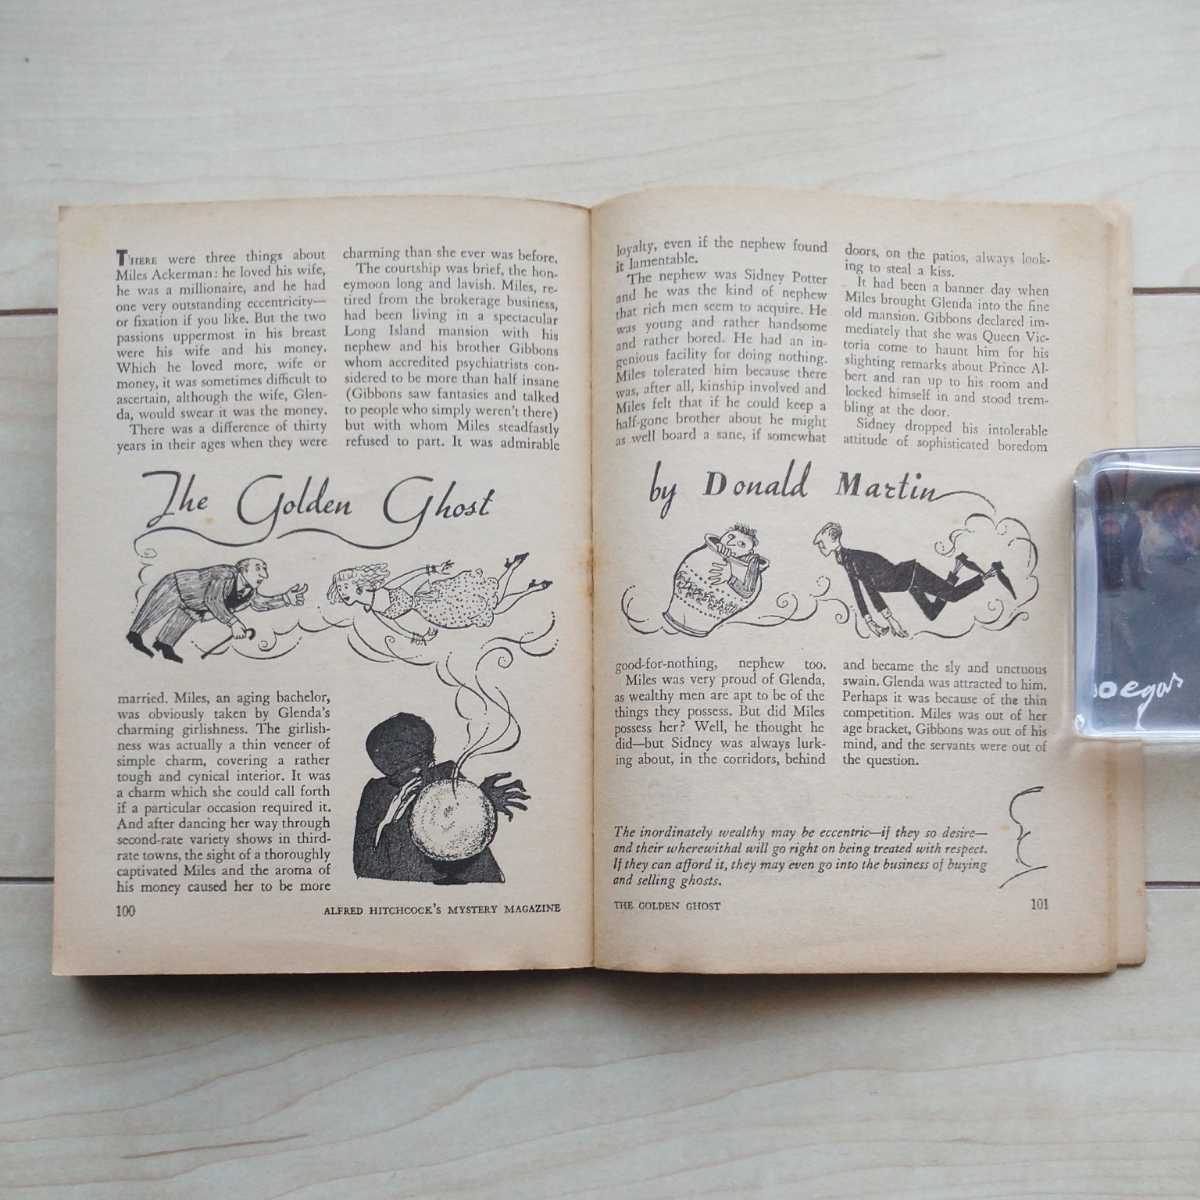 THERE were three things about
Miles Ackerman: he loved his wife,
he was a millionaire, and he had
one very outstanding eccentricity—
or fixation if you like. But the two
passions uppermost in his breast
were his wife and his money.
Which he loved more, wife or
money, it was sometimes difficult to
ascertain, although the wife, Glen-
da, would swear it was the money.
There was a difference of thirty
years in their ages when they were
charming than she ever was before.
The courtship was brief, the hon-
eymoon long and lavish. Miles, re-
tired from the brokerage business,
had been living in a spectacular
Long Island mansion with his
nephew and his brother Gibbons
whom accredited psychiatrists con-
sidered to be more than half insane
(Gibbons saw fantasies and talked
to people who simply weren't there)
but with whom Miles steadfastly
refused to part. It was admirable
The Golden Ghost
married. Miles, an aging bachelor,
was obviously taken by Glenda's
charming girlishness. The girlish-
ness was actually a thin veneer of
simple charm, covering a rather
tough and cynical interior. It was
a charm which she could call forth
if a particular occasion required it.
And after dancing her way through
second-rate variety shows in third-
rate towns, the sight of a thoroughly
captivated Miles and the aroma of
his money caused her to be more
100
ALFRED HITCHCOCK'S MYSTERY MAGAZINE
loyalty, even if the nephew found
it lamentable.
The nephew was Sidney Potter
and he was the kind of nephew
that rich men seem to acquire. He
was young and rather handsome
and rather bored. He had an in-
genious facility for doing nothing.
Miles tolerated him because there
was, after all, kinship involved and
Miles felt that if he could keep a
half-gone brother about he might
as well board a sane, if somewhat
doors, on the patios, always look-
ing to steal a kiss.
It had been a banner day when
Miles brought Glenda into the fine
old mansion. Gibbons declared im-
mediately that she was Queen Vic-
toria come to haunt him for his
slighting remarks about Prince Al-
bert and ran up to his room and
locked himself in and stood trem-
bling at the door.
Sidney dropped his intolerable
attitude of sophisticated boredom
by Donald Martin
good-for-nothing, nephew too.
Miles was very proud of Glenda,
as wealthy men are apt to be of the
things they possess. But did Miles
possess her? Well, he thought he
did—but Sidney was always lurk-
ing about, in the corridors, behind
and became the sly and unctuous
swain. Glenda was attracted to him.
Perhaps it was because of the thin
competition. Miles was out of her
age bracket, Gibbons was out of his
mind, and the servants were out of
the question.
The inordinately wealthy may be eccentric—if they so desire—
and their wherewithal will go right on being treated with respect.
If they can afford it, they may even go into the business of buying
and selling ghosts.
THE GOLDEN GHOST
101